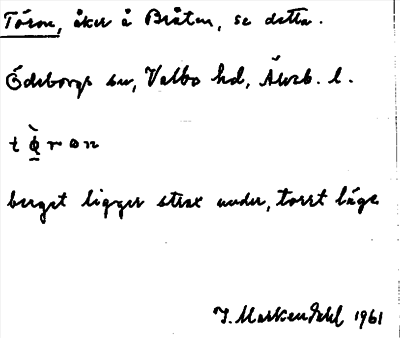 Tören, åker å Bråten, se detta.
Ödeborgs sn, Valbo hd, Älvsb. l.
t ø̀ r ɷ n
berget ligger strax under, torrt läge
1961